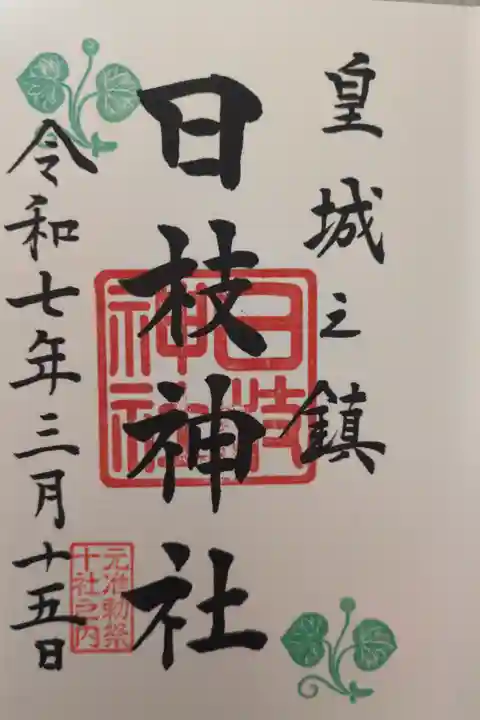 皇城之鎮
日枝神社
日枝神社
元准勅祭
十社之内
令和七年三月十五日